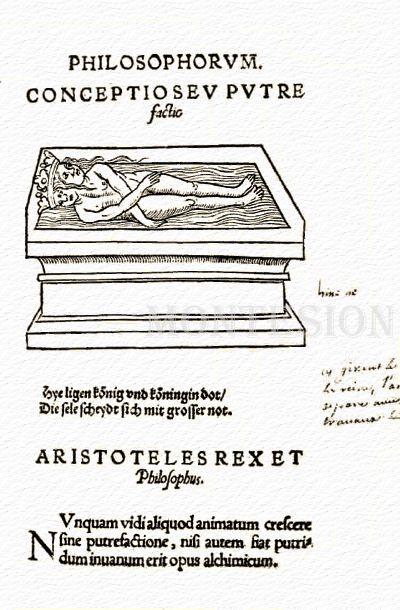 PHILOSOPHORVM.
CONCEPTIO SEV PVTRE
factio
MONTESION
Hye ligen könig vnd königin dot/
Die sele scheydt sich mit grosser not.
ARISTOTELES REX ET
Philosophus.
NVnquam vidi aliquod animatum crescere
sine putrefactione, nisi autem fiat putri-
dum inuanum erit opus alchimicum.